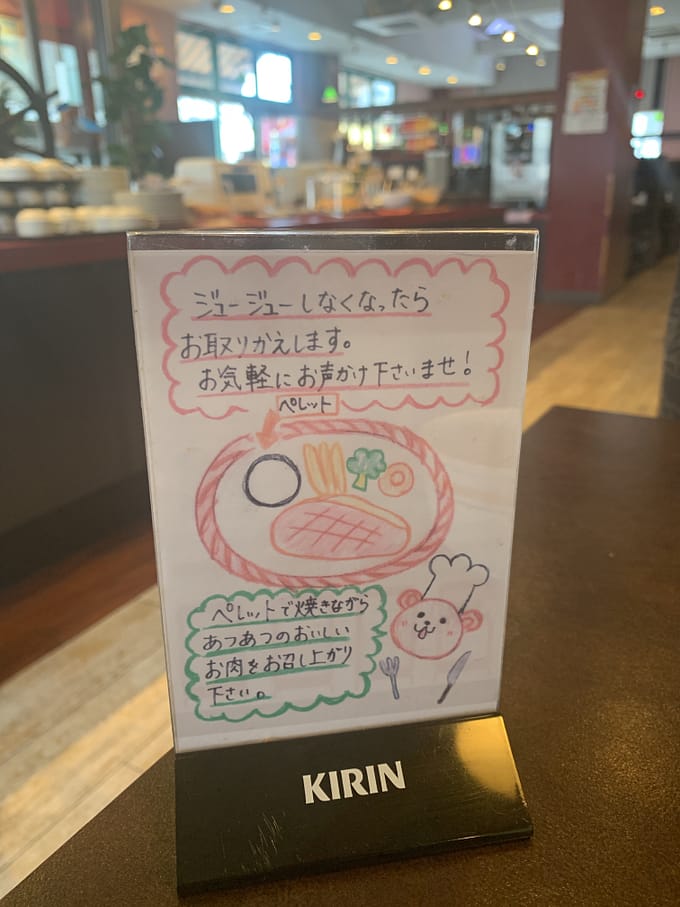 ジュージューしなくなったら
お取りかえします。
お気軽にお声がけ下さいませ!
ペレット
ペレットで焼きながら
あつあつのおいしい
お肉をお召し上がり
下さい。
KIRIN